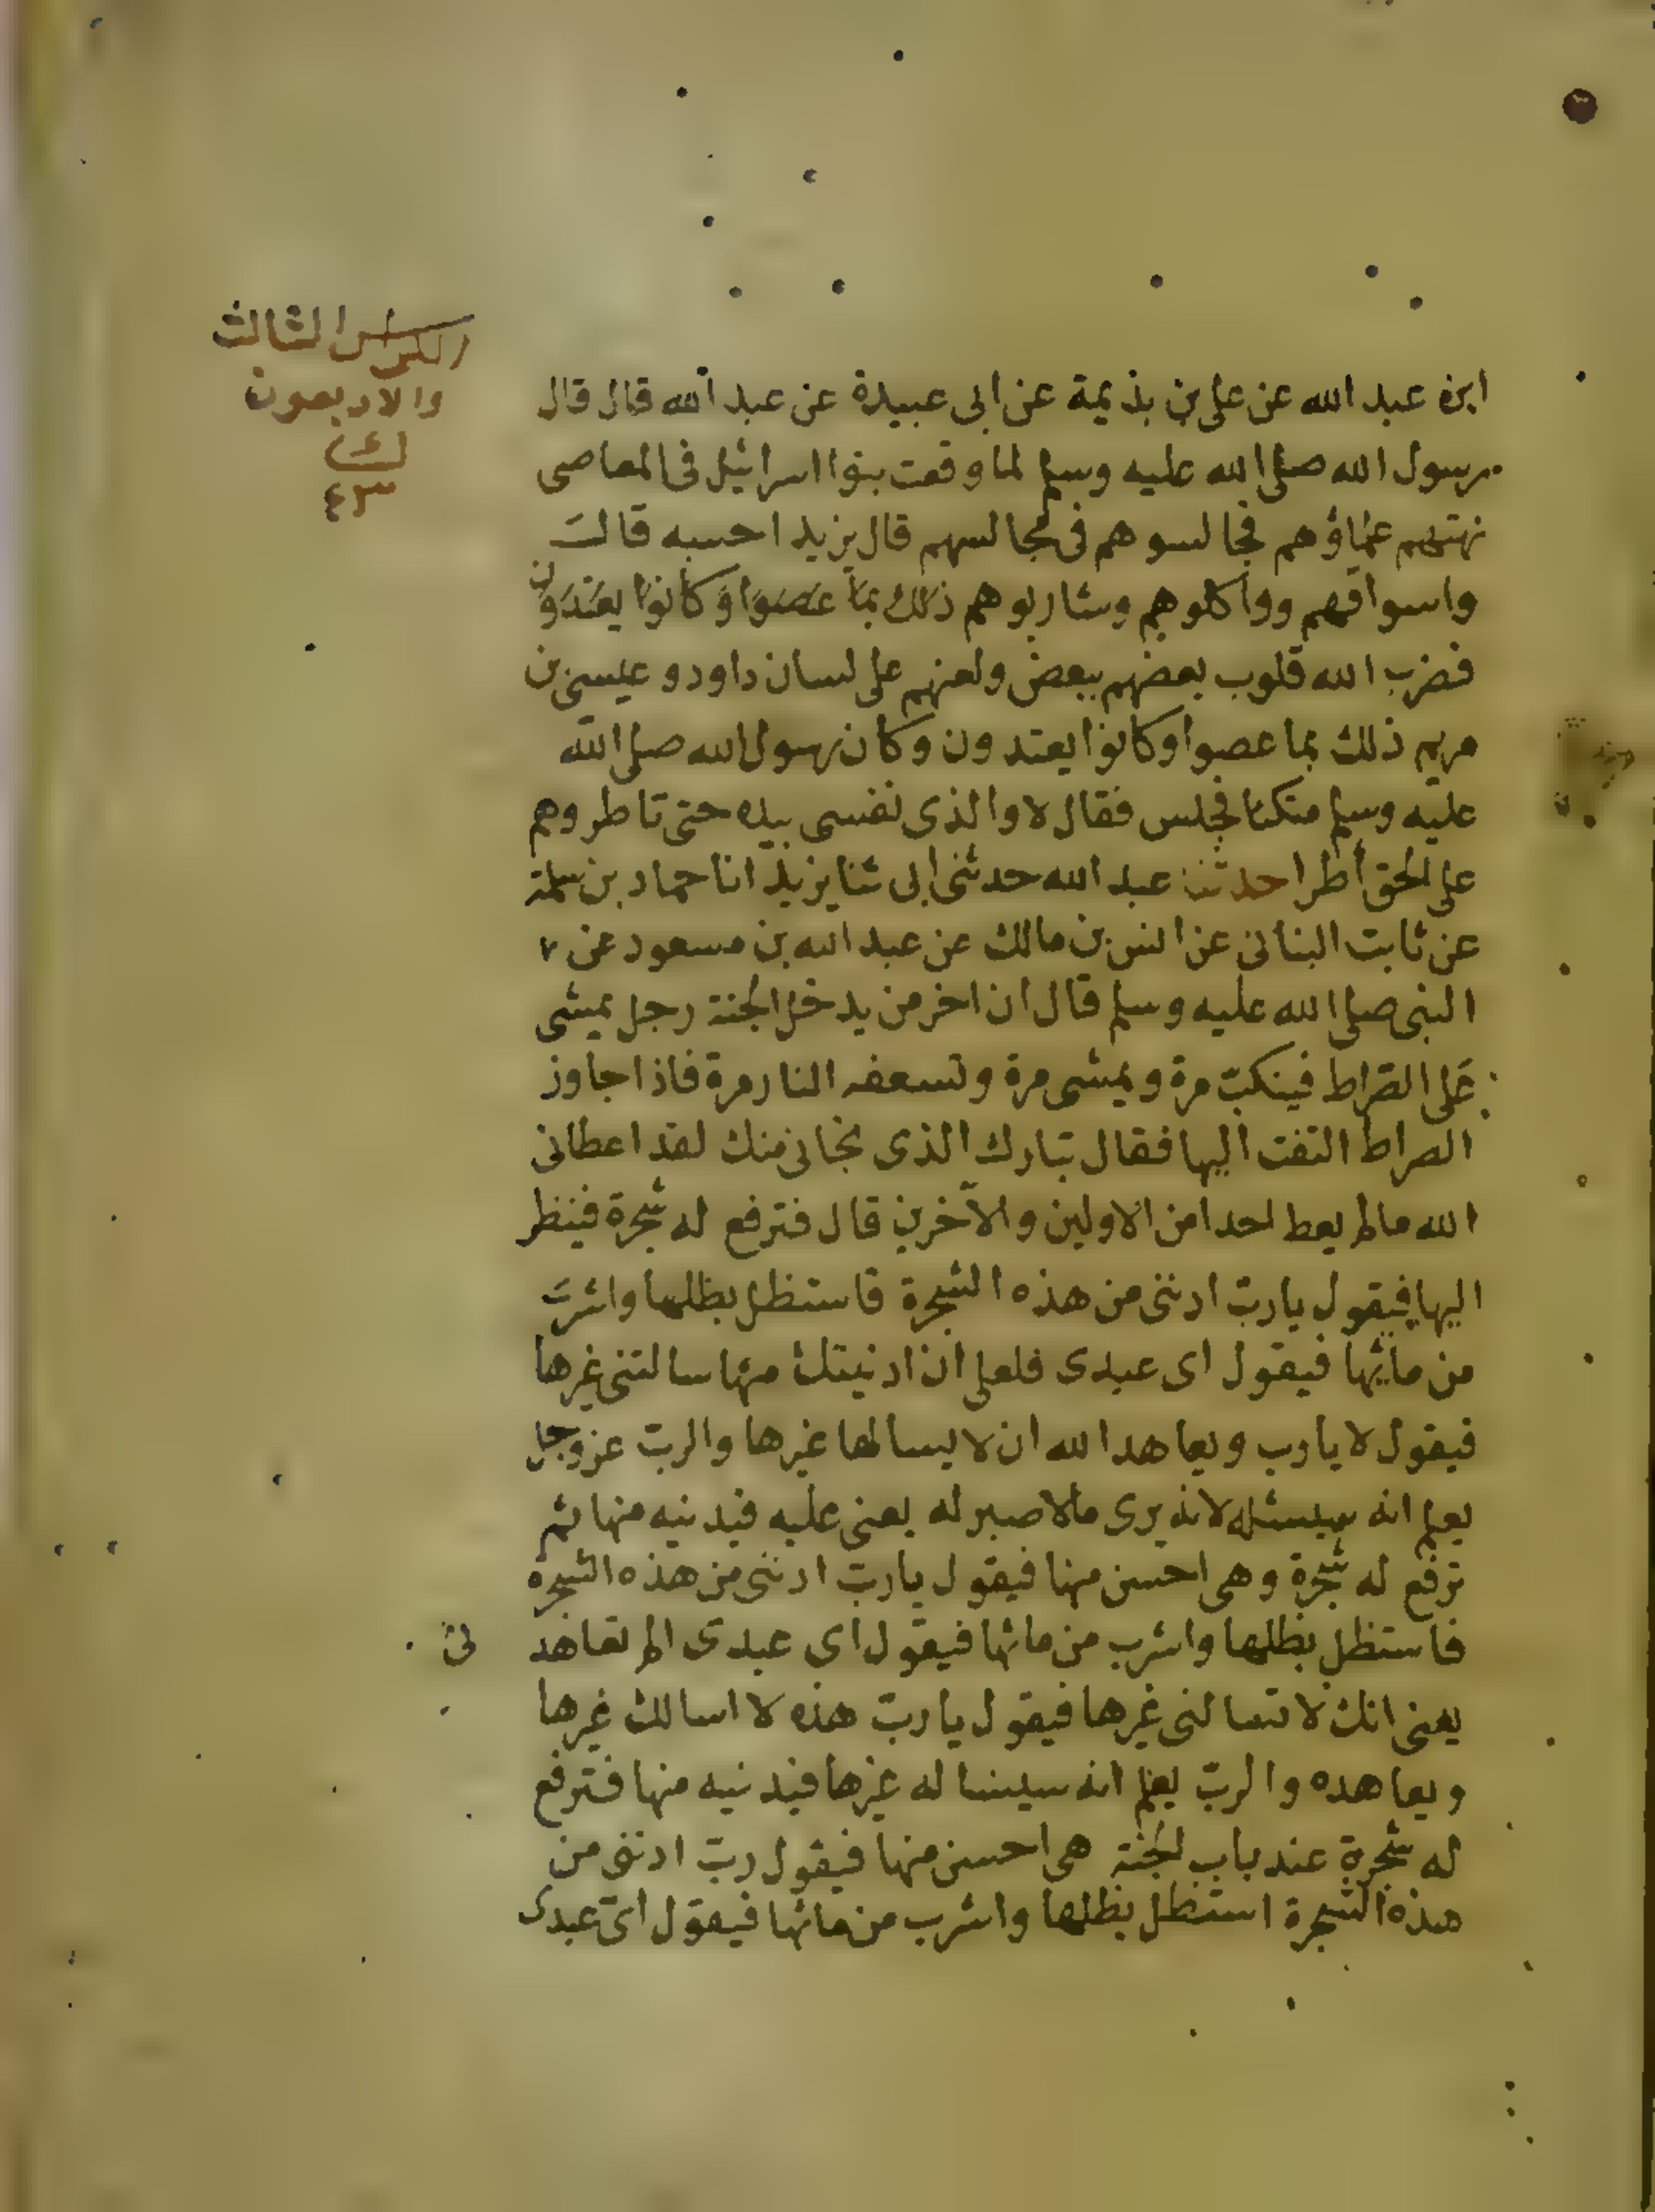 الكراس الثالث
والاربعون
٤٣
ابن عبد الله عن على بن بذيمة عن ابى عبيدة عن عبد الله قال قال
رسول الله صلى الله عليه وسلم لما وقعت بنوا اسرائيل فى المعاصى
نهتهم علماؤهم فجالسوهم فى مجالسهم قال يزيد احسبه قال
واسواقهم وواكلوهم وشاربوهم ذلك بما عصوا وكانوا يعتدون
فضرب الله قلوب بعضهم ببعض ولعنهم على لسان داود وعيسى بن
مريم ذلك بما عصوا وكانوا يعتدون وكان رسول الله صلى الله
عليه وسلم متكئا فجلس فقال لا والذى نفسى بيده حتى تاطروهم
على الحق أطرا حدثنا عبد الله حدثنى ابى ثنا يزيد انا حماد بن سلمة
عن ثابت البنانى عن انس بن مالك عن عبد الله بن مسعود عن
النبى صلى الله عليه وسلم قال ان اخر من يدخل الجنة رجل يمشى
على الصّراط فينكبّ مرة ويمشى مرة وتسعفه النار مرة فاذا جاوز
الصراط التفت اليها فقال تبارك الذى نجانى منك لقد اعطانى
الله مالم يعط احدا من الاولين والآخرين قال فترفع له شجرة فينظر
اليها فيقول يا ربّ ادننى من هذه الشجرة فاستظل بظلها واشرب
من مائها فيقول اى عبدى فلعلى ان ادنيتك منها سالتنى غيرها
فيقول لا يا رب ويعاهد الله ان لا يسالها غيرها والربّ عز وجل
يعلم انه سيسئله لانه يرى مالا صبر له يعنى عليه فيدنيه منها ثم
ترفع له شجرة وهى احسن منها فيقول يا ربّ ادننى من هذه الشجرة
فاستظل بظلها واشرب من مائها فيقول اى عبدى الم تعاهد نى
يعنى انك لا تسالنى غيرها فيقول يا ربّ هذه لا اسالك غيرها
ويعاهده والربّ يعلم انه سيسا له غيرها فيدنيه منها فترفع
له شجرة عند باب الجنة هى احسن منها فيقول ربّ ادننى من
هذه الشجرة استظل بظلها واشرب من مائها فيقول اى عبدى